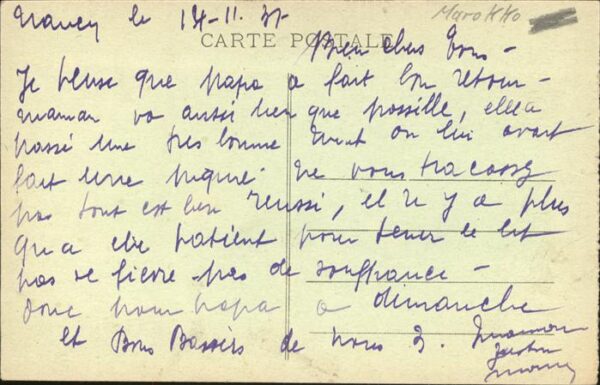 Nancy le 14-11-31- Marokko
CARTE POSTALE
Bien chers Tous -
Je pense que papa a fait bon retour -
maman va aussi bien que possible, elle a
passé une très bonne nuit on lui avait
fait une piqure. Ne vous tracassez
pas tout est bien réussi, il n'y a plus
qu'a etre patient pour tenir le lit
pas de fievre - pas de souffrance -
donc pour papa a dimanche
et Bons Baisers de nous 3. maman